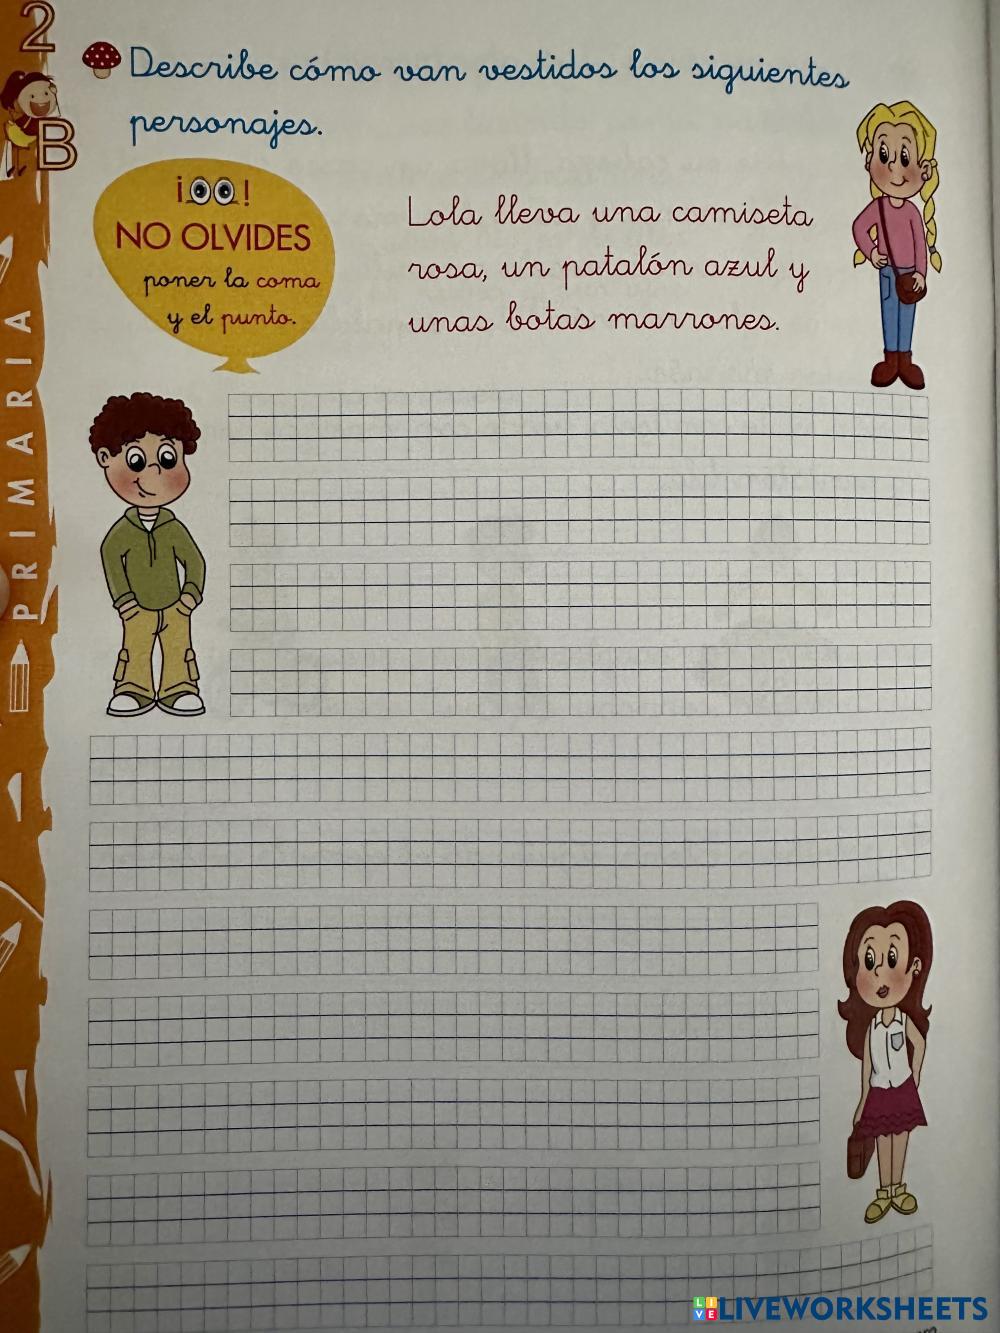 2
B
PRIMARIA
Describe cómo van vestidos los siguientes
personajes.
¡OO!
NO OLVIDES
poner la coma
y el punto.
Lola lleva una camiseta
rosa, un patalón azul y
unas botas marrones.
LIVEWORKSHEETS